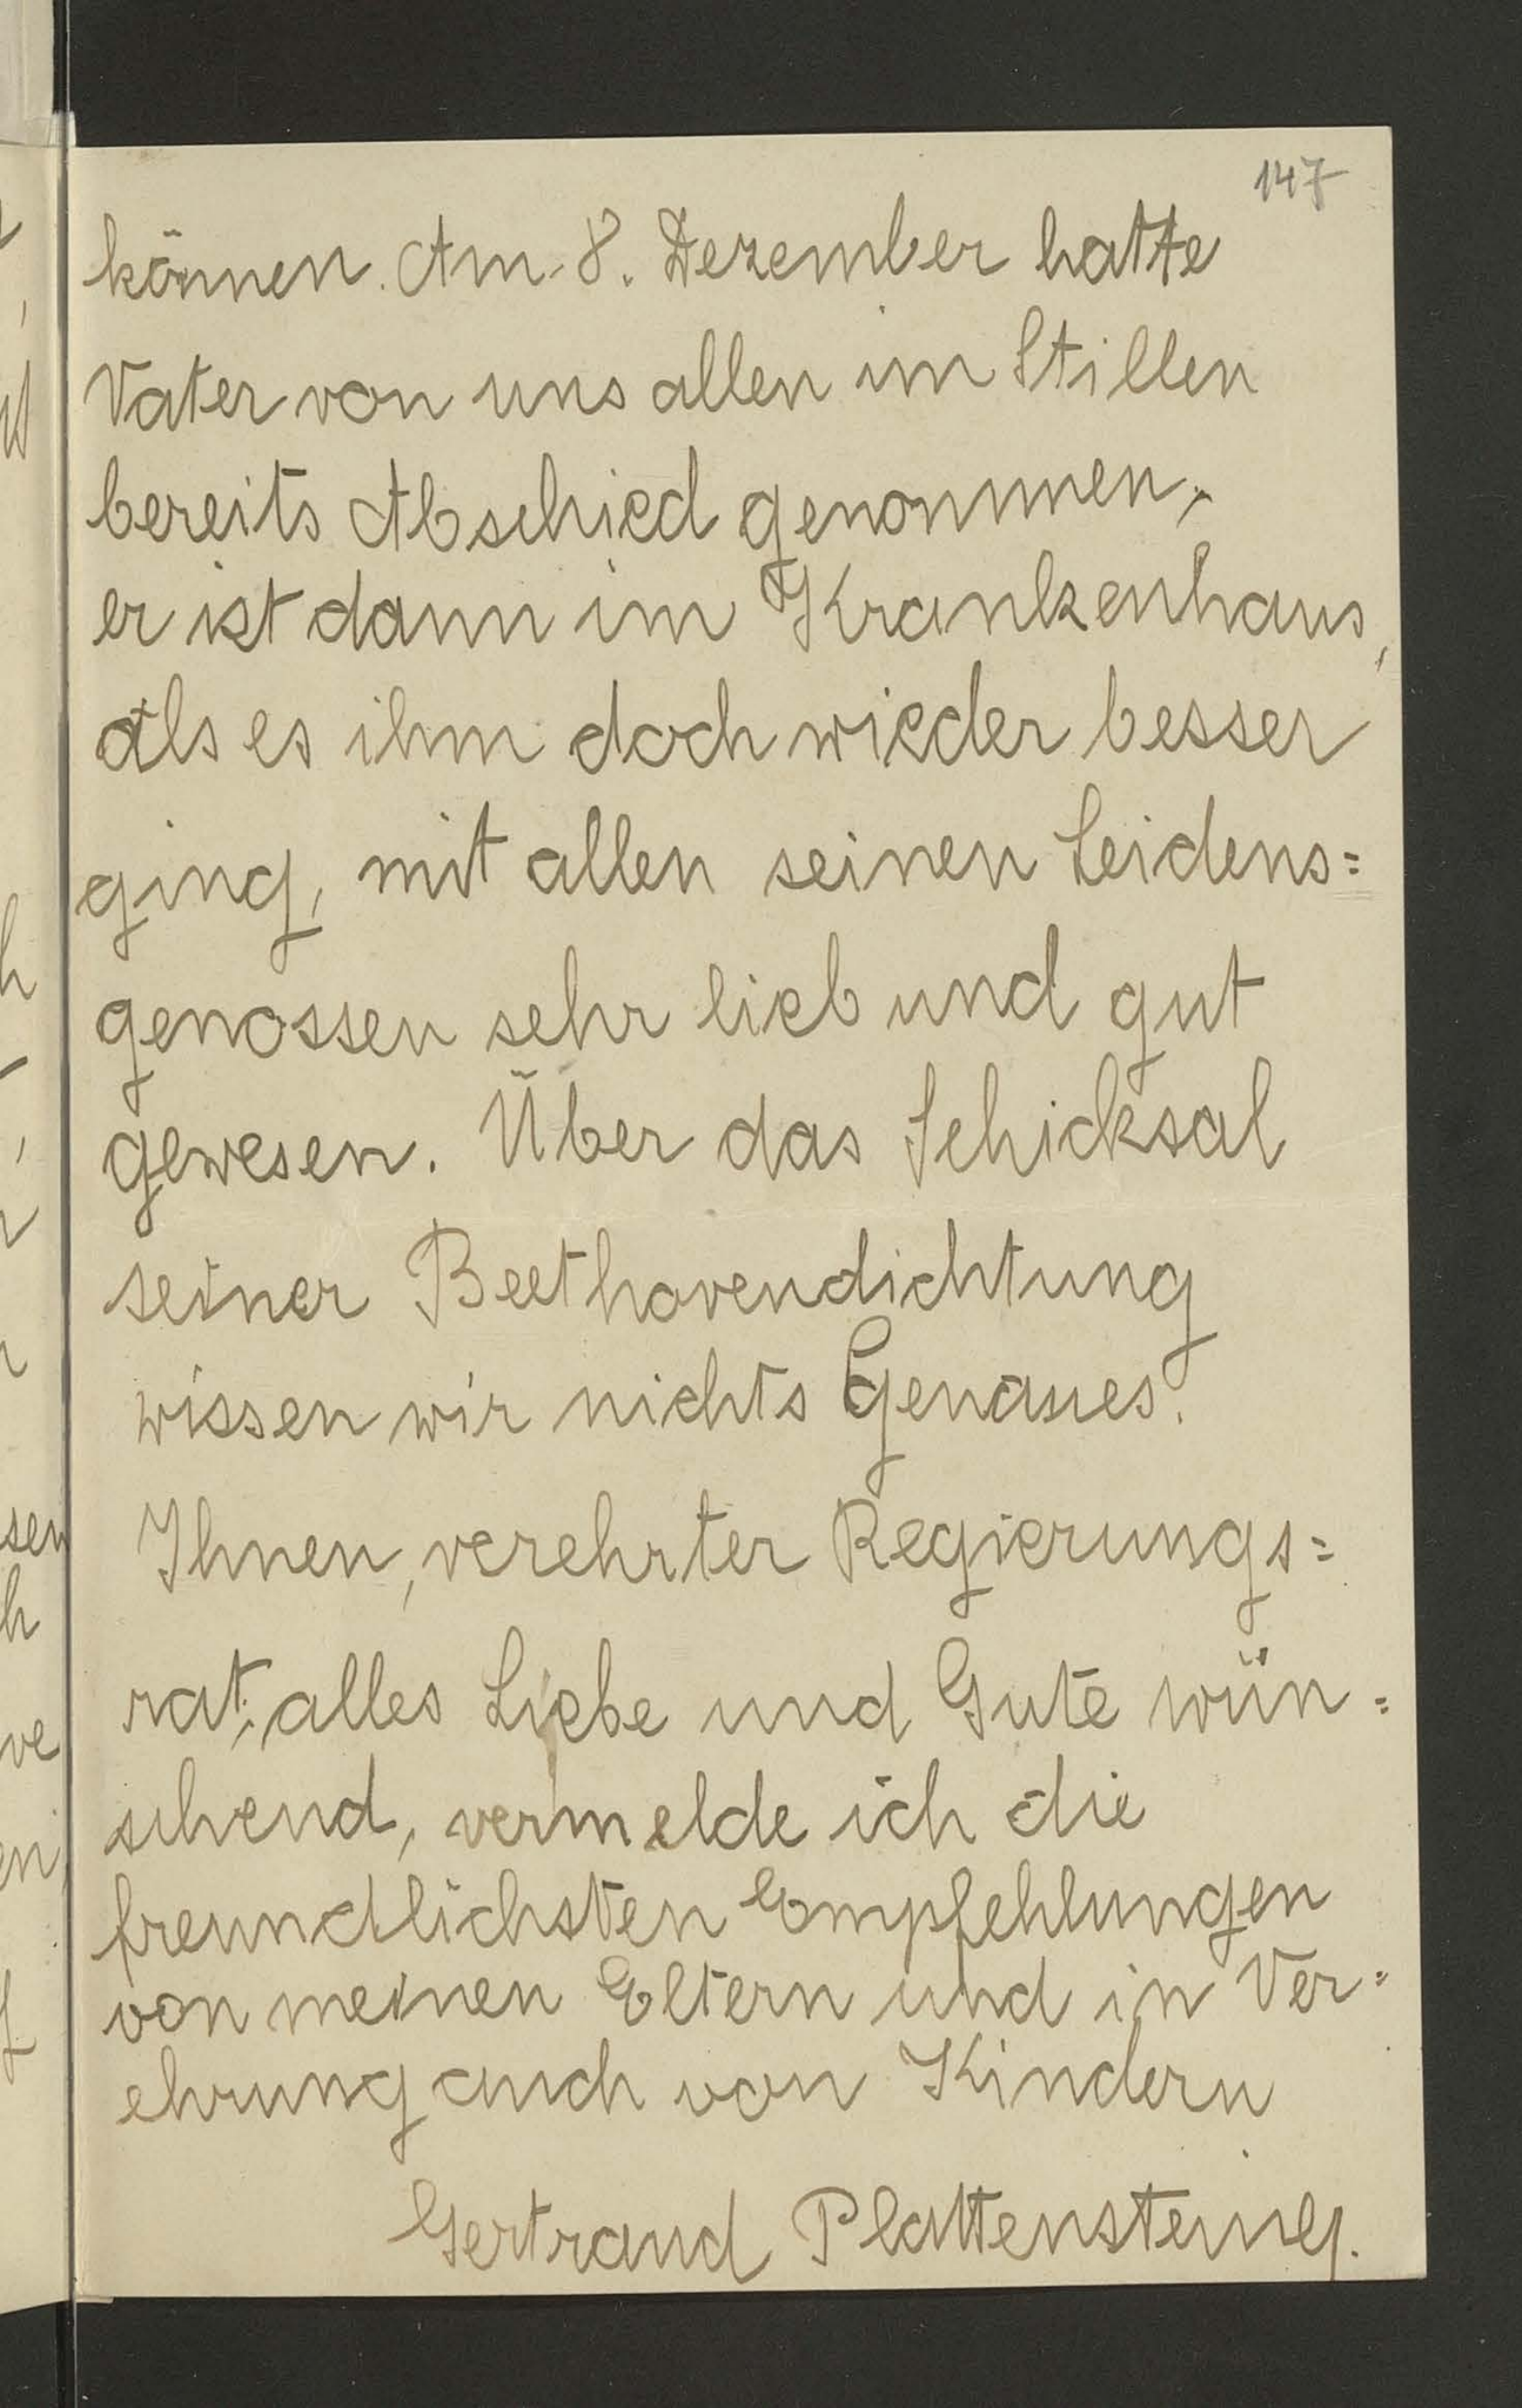 147
können. Am 8. Dezember hatte
Vater von uns allen im Stillen
bereits Abschied genommen,
er ist dann im Krankenhaus,
als es ihm doch wieder besser
ging, mit allen seinen Leidens=
genossen sehr lieb und gut
gewesen. Über das Schicksal
seiner Beethovendichtung
wissen wir nichts Genaues.
Ihnen, verehrter Regierungs=
rat, alles Liebe und Gute wün=
schend, vermelde ich die
freundlichsten Empfehlungen
von meinen Eltern und in Ver=
ehrung auch von Kindern
Gertraud